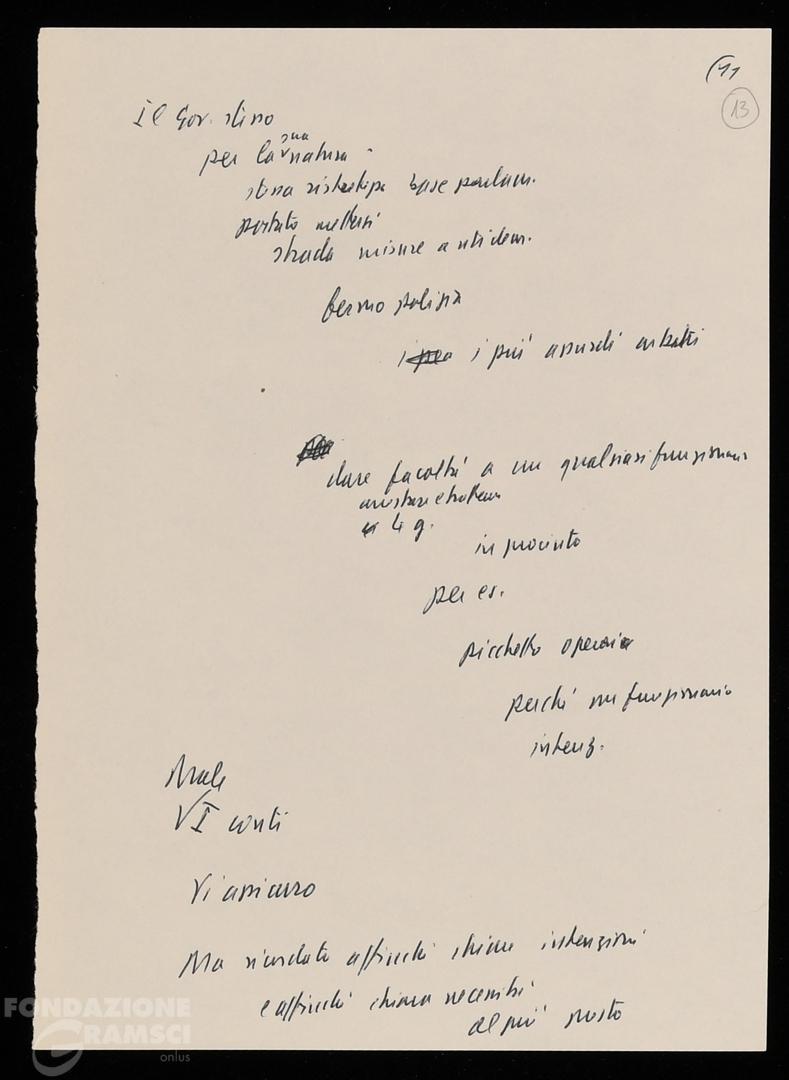 (11
13
Il Gov. stesso
per la sua natura -
stessa ristrettezza base parlam.
portato mettersi
strada misure antidem.
fermo polizia
i più assurdi arbitri
dare facoltà a un qualsiasi funzionario
arrestare e trattenere
4 g.
in procinto
per es.
picchetto operaio
perché un funzionario
intenz.
Male
VI conti
Vi assicuro
Ma ricordate affinché chiare intenzioni
e affinché chiara necessità
al più presto
FONDAZIONE
GRAMSCI
onlus